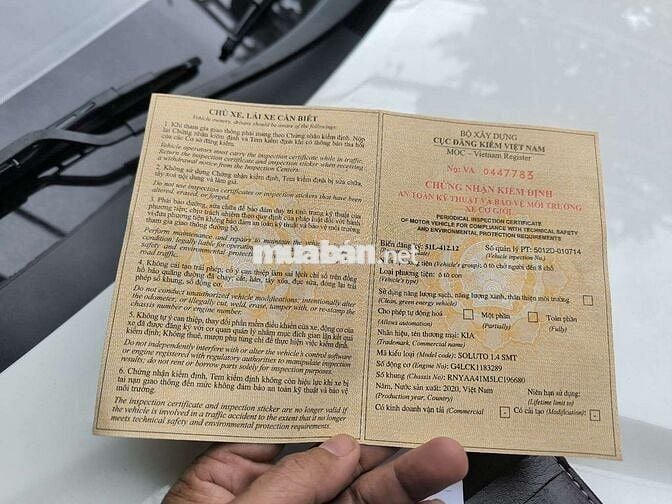 CHỦ XE, LÁI XE CẦN BIẾT
Vehicle owners, drivers should be aware of the followings:
1. Khi tham gia giao thông phải mang theo Chứng nhận kiểm định. Nộp
lại Chứng nhận kiểm định và Tem kiểm định khi có thông báo thu hồi
của các Cơ sở đăng kiểm.
Vehicle operators must carry the inspection certificate while in traffic.
Return the inspection certificate and inspection sticker when receiving
a withdrawal notice from the Inspection Centers.
2. Không sử dụng Chứng nhận kiểm định, Tem kiểm định bị sửa chữa,
tẩy xoá nội dung và làm giả.
Do not use inspection certificates or inspection stickers that have been
altered, erased, or forged.
3. Phải bảo dưỡng, sửa chữa để bảo đảm duy trì tình trạng kỹ thuật của
phương tiện; chịu trách nhiệm theo quy định của pháp luật đối với hành
vi đưa phương tiện không bảo đảm an toàn kỹ thuật và bảo vệ môi trường
tham gia giao thông đường bộ.
Perform maintenance and repairs to maintain the
condition; legally liable for operating
safety and environmental protection
road traffic.
4. Không cải tạo trái phép; cố ý can thiệp làm sai lệch chỉ số trên đồng
hồ báo quãng đường đã chạy; cắt, hàn, tẩy xóa, đục sửa, đóng lại trái
phép số khung, số động cơ.
Do not conduct unauthorized vehicle modifications; intentionally alter
the odometer, or illegally cut, weld, erase, tamper with, or re-stamp the
chassis number or engine number.
5. Không tự ý can thiệp, thay đổi phần mềm điều khiển của xe, động cơ của
xe đã được đăng ký với cơ quan quản lý nhằm mục đích gian lận kết quả
kiểm định; Không thuê, mượn phụ tùng chỉ để thực hiện việc kiểm định.
Do not independently interfere with or alter the vehicle's control software
or engine registered with regulatory authorities to manipulate inspection
results; do not rent or borrow parts solely for inspection purposes.
6. Chứng nhận kiểm định, Tem kiểm định không còn hiệu lực khi xe bị
tai nạn giao thông đến mức không đảm bảo an toàn kỹ thuật và bảo vệ
môi trường.
The inspection certificate and inspection sticker are no longer valid if
the vehicle is involved in a traffic accident to the extent that it no longer
meets technical safety and environmental protection requirements.
BỘ XÂY DỰNG
CỤC ĐĂNG KIỂM VIỆT NAM
MOC – Vietnam Register
No: VA 0447783
CHỨNG NHẬN KIỂM ĐỊNH
AN TOÀN KỸ THUẬT VÀ BẢO VỆ MÔI TRƯỜNG
XE CƠ GIỚI
PERIODICAL INSPECTION CERTIFICATE
OF MOTOR VEHICLE FOR COMPLIANCE WITH TECHNICAL SAFETY
AND ENVIRONMENTAL PROTECTION REQUIREMENTS
Biển đăng ký: 51L-412.12 Số quản lý PT: 5012D-010714
(Vehicle inspection No.)
ô tô chở người đến 8 chỗ
Loại phương tiện: ô tô con
(Vehicle's type)
Sử dụng năng lượng sạch, năng lượng xanh, thân thiện môi trường
(Clean, green energy vehicle)
Cho phép tự động hoá Một phần Toàn phần
(Allows automation) (Partially) (Fully)
Nhãn hiệu, tên thương mại: KIA
(Trademark, Commercial name)
Mã kiểu loại (Model code): SOLUTO 1.4 SMT
Số động cơ (Engine No): G4LCK1183289
Số khung (Chassis No): RNYAA41M5LC196680
Năm, Nước sản xuất: 2020, Việt Nam Niên hạn sử dụng:
(Production year, Country) (Lifetime limit to)
Có kinh doanh vận tải (Commercial - Có cải tạo (Modification): -
muaban.net